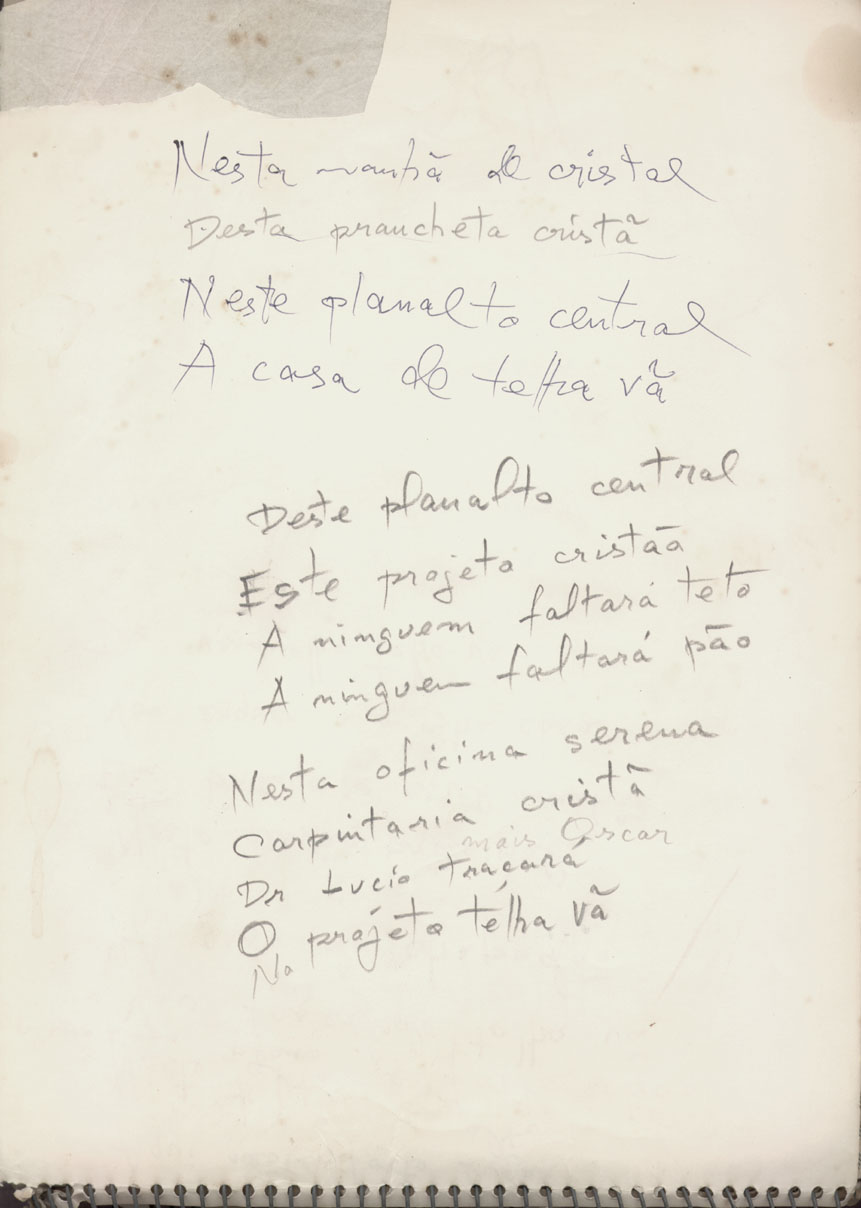 Nesta manhã de cristal
Desta prancheta cristã
Neste planalto central
A casa de telha vã
Deste planalto central
Este projeto cristão
A ninguem faltará teto
A ninguem faltará pão
Nesta oficina serena
Carpintaria cristã
mais Oscar
Dr Lucio traçará
O projeto telha vã
No